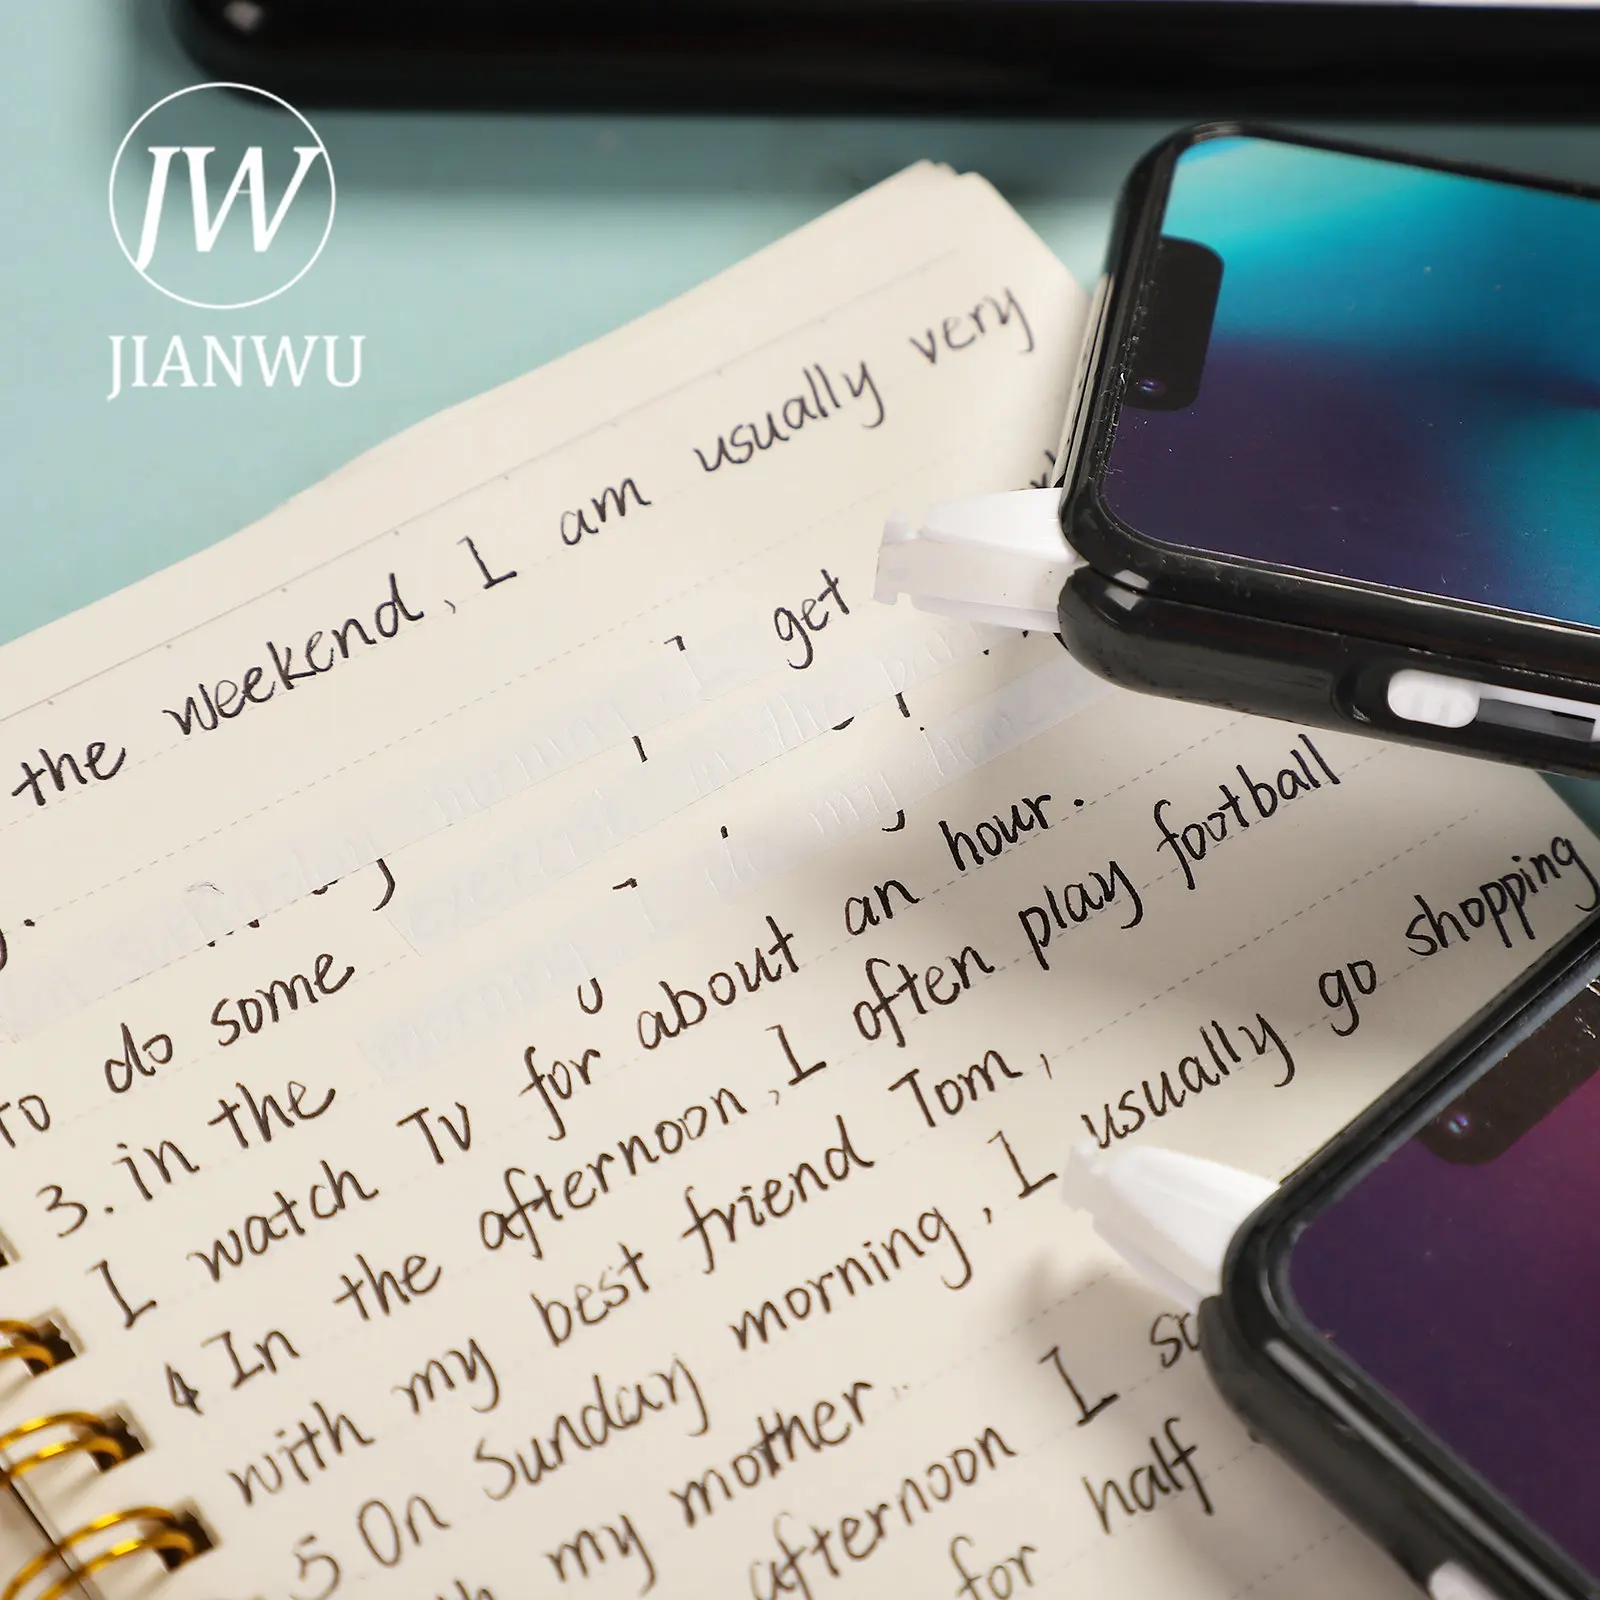 JW
JIANWU
the weekend, I am usually very
I get
to do some
3. in the
I watch TV for about an hour.
4 In the afternoon, I often play football
with my best friend Tom,
5 On Sunday morning, I usually go shopping
my mother.
afternoon I
for half